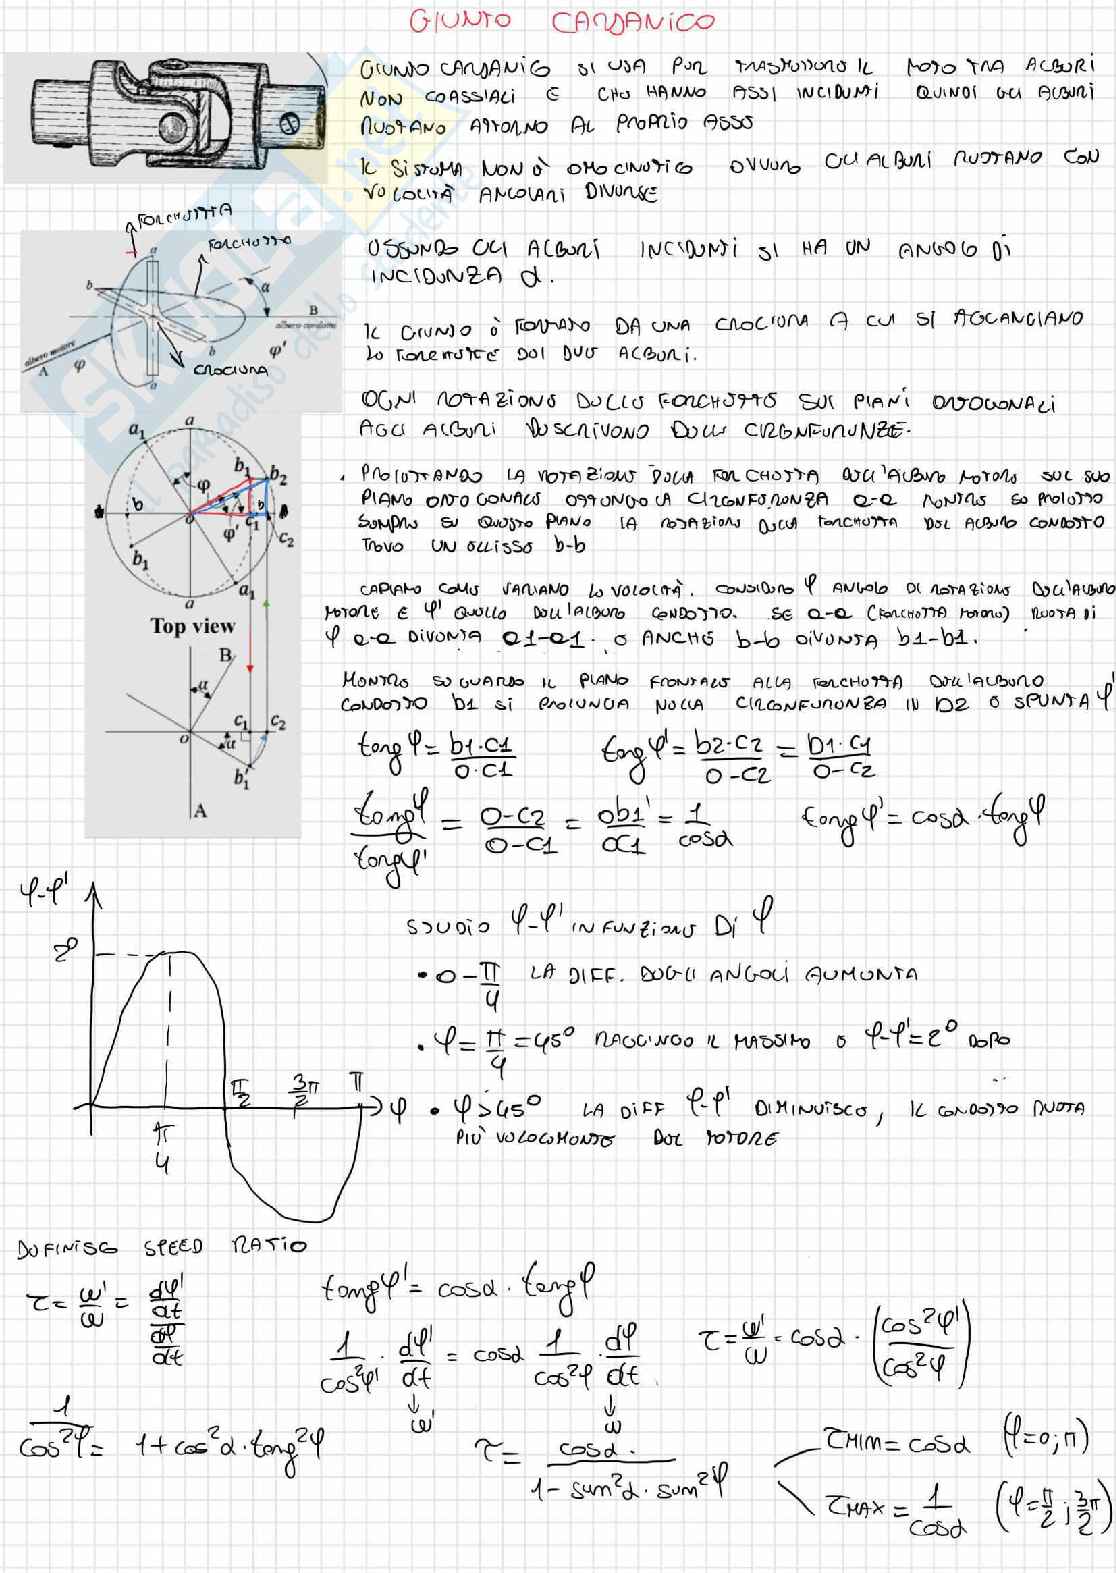 GIUNTO CARDANICO
GIUNTO CARDANICO SI USA PER TRASMETTERE IL MOTO TRA ALBERI
NON COASSIALI E CHE HANNO ASSI INCIDENTI QUINDI GLI ALBERI
RUOTANO ATTORNO AL PROPRIO ASSE
IL SISTEMA NON È OMOCINETICO OVVERO GLI ALBERI RUOTANO CON
VELOCITÀ ANGOLARI DIVERSE
FORCHETTA
FORCHETTA
a
b
α
B
albero condotto
albero motore
A
φ
b
φ'
a
CROCIERA
ESSENDO GLI ALBERI INCIDENTI SI HA UN ANGOLO DI
INCIDENZA α.
IL GIUNTO È FORMATO DA UNA CROCIERA A CUI SI AGGANCIANO
LE FORCHETTE DEI DUE ALBERI.
OGNI ROTAZIONE DELLE FORCHETTE SUI PIANI ORTOGONALI
AGLI ALBERI DESCRIVONO DELLE CIRCONFERENZE.
a1
a
b1
b2
φ
b
o
φ'
c1
b
c2
b1
a
a1
Top view
. PROIETTANDO LA ROTAZIONE DELLA FORCHETTA DELL'ALBERO MOTORE SUL SUO
PIANO ORTOGONALE OTTENGO LA CIRCONFERENZA a-a MENTRE SE PROIETTO
SEMPRE SU QUESTO PIANO LA ROTAZIONE DELLA FORCHETTA DEL ALBERO CONDOTTO
TROVO UN ELLISSE b-b
CAPIAMO COME VARIANO LE VELOCITÀ. CONSIDERO φ ANGOLO DI ROTAZIONE DELL'ALBERO
MOTORE E φ' QUELLO DELL'ALBERO CONDOTTO. SE a-a (FORCHETTA MOTORE) RUOTA DI
φ a-a DIVENTA a1-a1. E ANCHE b-b DIVENTA b1-b1.
MENTRE SE GUARDO IL PIANO FRONTALE ALLA FORCHETTA DELL'ALBERO
CONDOTTO b1 SI PROLUNGA NELLA CIRCONFERENZA IN b2 E SPUNTA φ'
B
α
o
c1
c2
α
b1'
A
tang φ = b1·c1 / O·c1 tang φ' = b2-c2 / O-c2 = b1·c1 / O-c2
tang φ / tang φ' = O-c2 / O-c1 = ob1' / oc1 = 1 / cosα tang φ' = cosα · tang φ
φ-φ'
2°
π/4
π/2
3π/2
π
φ
STUDIO φ-φ' IN FUNZIONE DI φ
• 0-π/4 LA DIFF. DEGLI ANGOLI AUMENTA
• φ = π/4 = 45° RAGGIUNGO IL MASSIMO E φ-φ' = 2° DOPO
• φ > 45° LA DIFF φ-φ' DIMINUISCE, IL CONDOTTO RUOTA
PIÙ VELOCEMENTE DEL MOTORE
DEFINISCO SPEED RATIO
τ = ω'/ω = (dφ'/dt) / (dφ/dt)
tang φ' = cosα · tang φ
1/cos²φ' · dφ'/dt = cosα 1/cos²φ · dφ/dt
↓ ω' ↓ ω
τ = ω'/ω = cosα · (cos²φ' / cos²φ)
1/cos²φ = 1 + cos²α · tang²φ
τ = cosα · / 1 - sen²α · sen²φ
τMIN = cosα (φ=0; π)
τMAX = 1/cosα (φ = π/2 ; 3π/2)